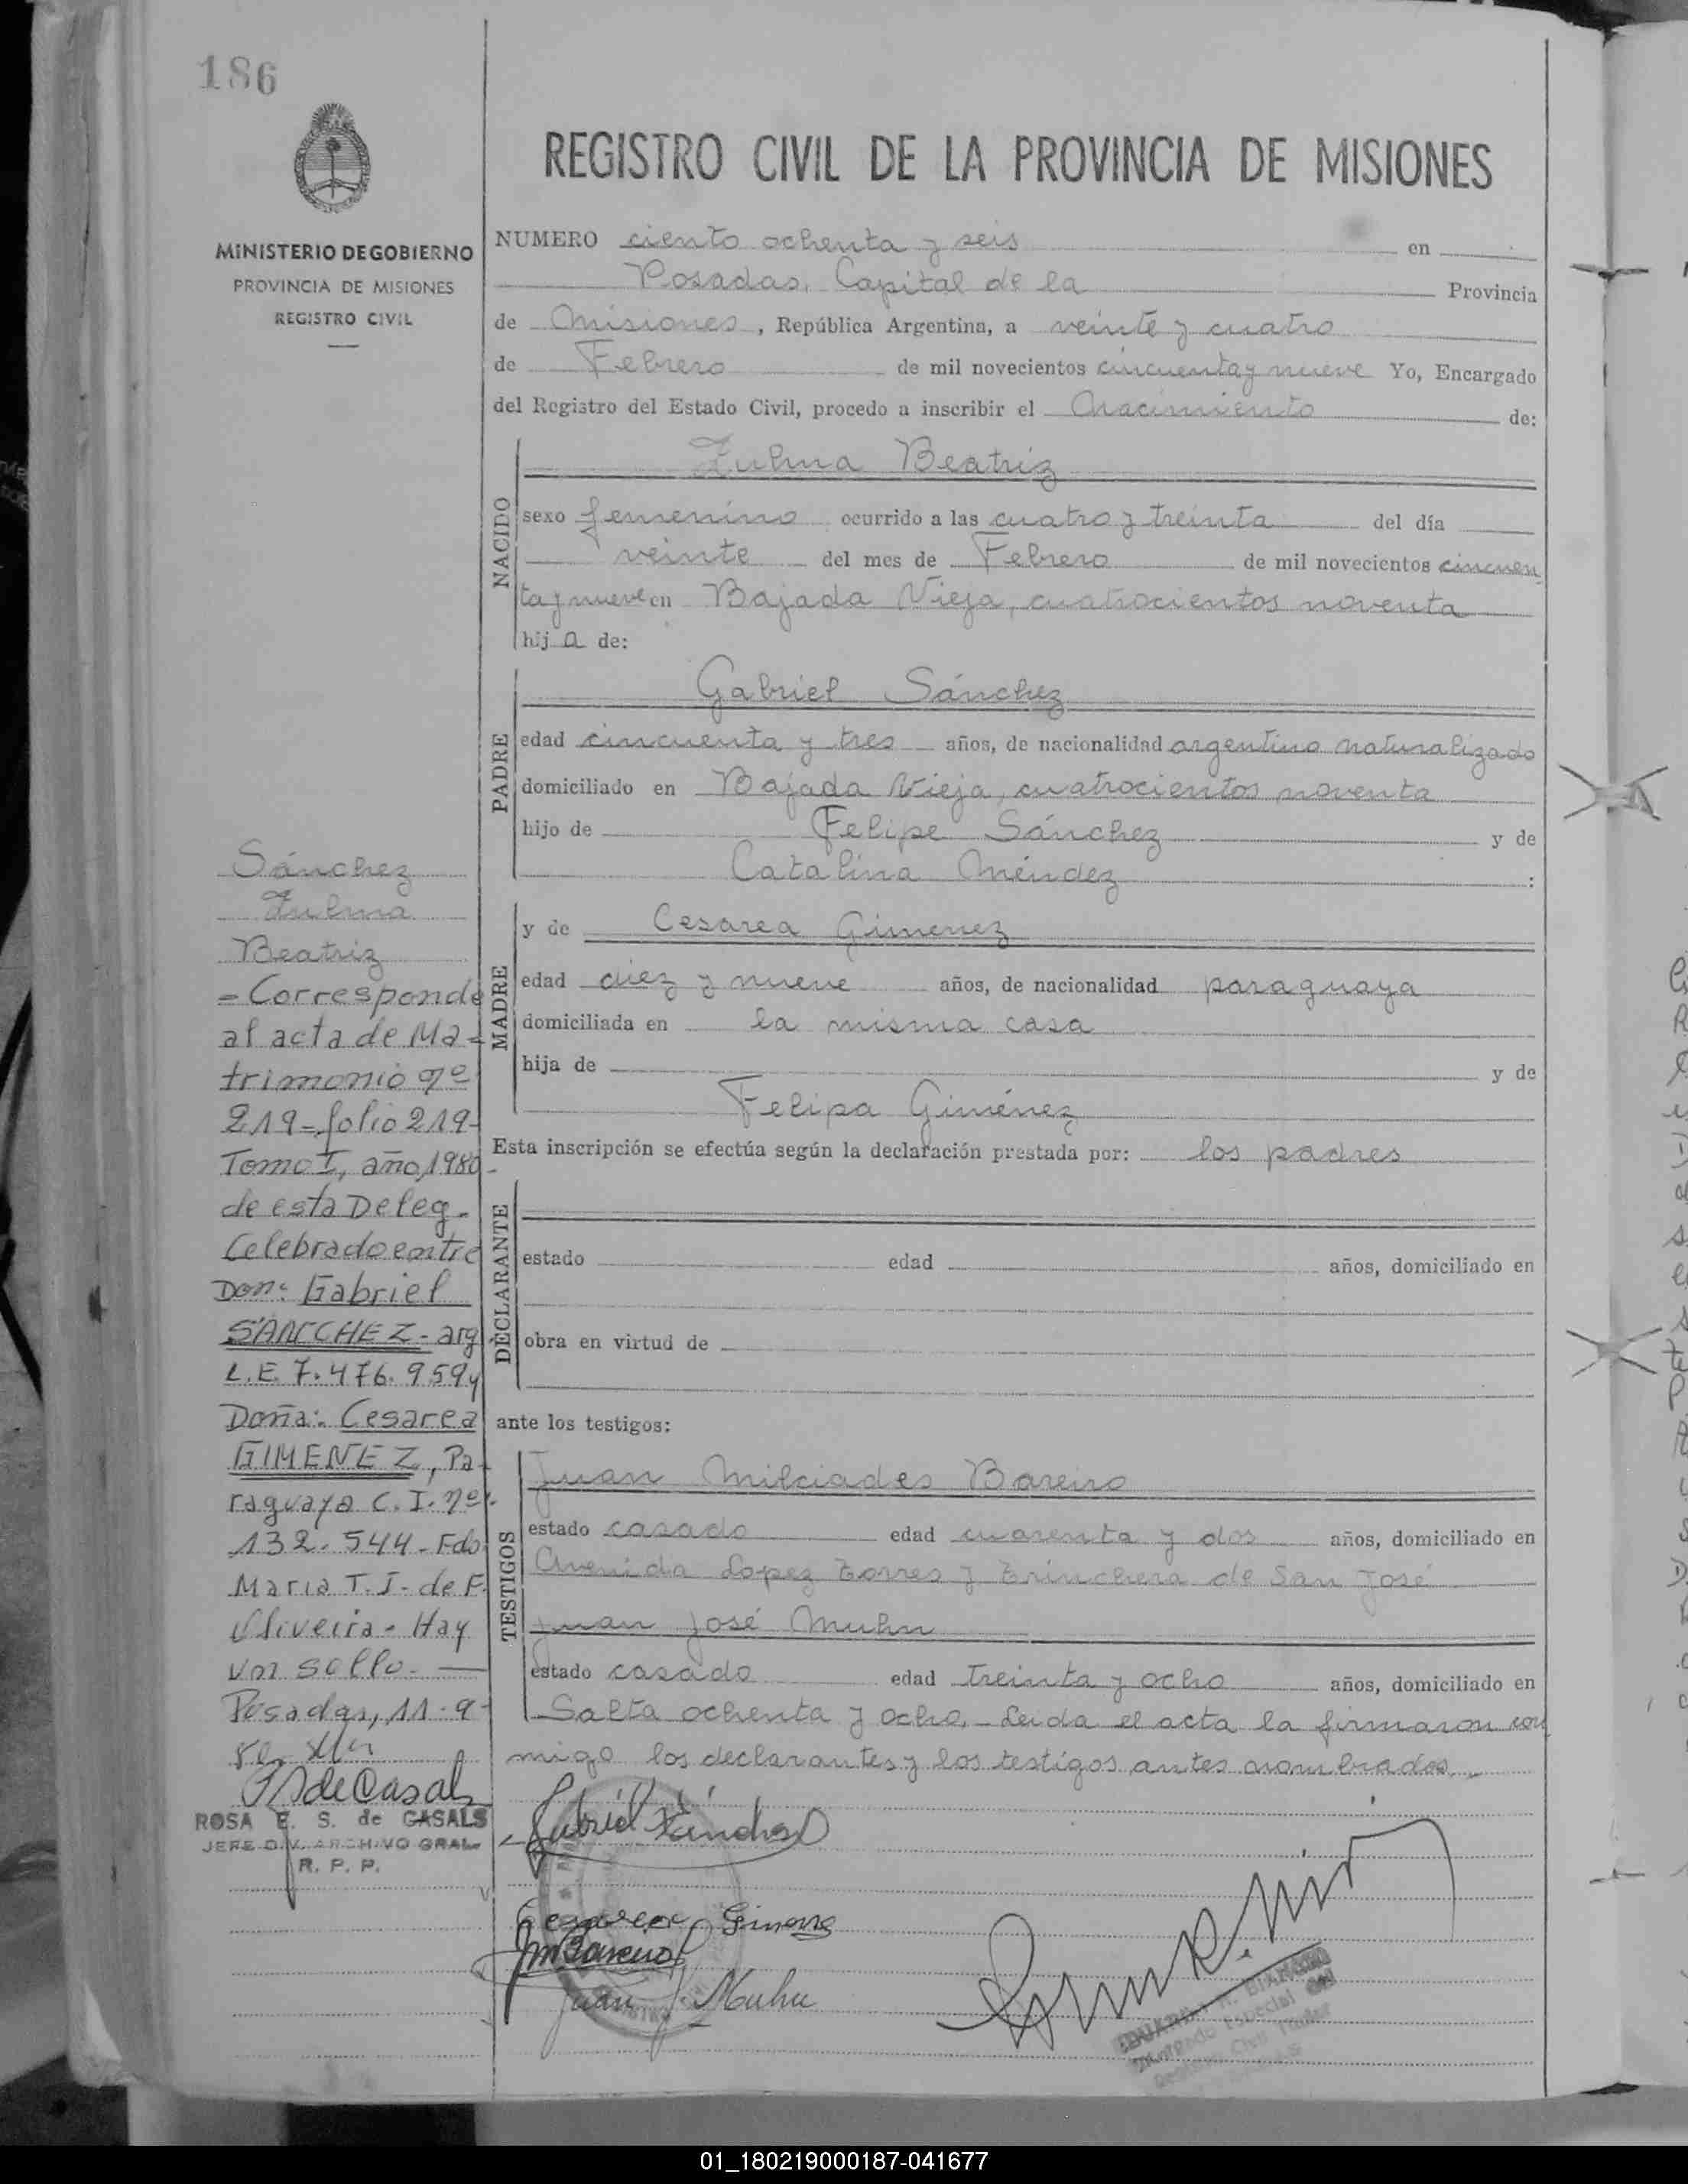 186
REGISTRO CIVIL DE LA PROVINCIA DE MISIONES
MINISTERIO DE GOBIERNO
PROVINCIA DE MISIONES
REGISTRO CIVIL
NUMERO ciento ochenta y seis en
Posadas, Capital de la Provincia
de Misiones, República Argentina, a veinte y cuatro
de Febrero de mil novecientos cincuenta y nueve Yo, Encargado
del Registro del Estado Civil, procedo a inscribir el Nacimiento de:
NACIDO
Zulma Beatriz
sexo femenino ocurrido a las cuatro y treinta del día
veinte del mes de Febrero de mil novecientos cincuen
ta y nueve en Bajada Vieja, cuatrocientos noventa
hija de:
PADRE
Gabriel Sánchez
edad cincuenta y tres años, de nacionalidad argentino naturalizado
domiciliado en Bajada Vieja, cuatrocientos noventa
hijo de Felipe Sánchez y de
Catalina Méndez :
MADRE
y de Cesarea Gimenez
edad diez y nueve años, de nacionalidad paraguaya
domiciliada en la misma casa
hija de y de
Felipa Giménez
Esta inscripción se efectúa según la declaración prestada por: los padres
DECLARANTE
estado edad años, domiciliado en
obra en virtud de
ante los testigos:
TESTIGOS
Juan Milciades Bareiro
estado casado edad cuarenta y dos años, domiciliado en
Avenida Lopez Torres y Trinchera de San José
Juan José Muhn
estado casado edad treinta y ocho años, domiciliado en
Salta ochenta y ocho.- Leida el acta la firmaron con
migo los declarantes y los testigos antes nombrados.-
Sánchez
Zulma
Beatriz
= Corresponde
al acta de Ma-
trimonio nº
219 - folio 219-
Tomo I, año 1980-
de esta Deleg.
Celebrado entre
Don: Gabriel
SANCHEZ - arg
L.E. 7.476.959 y
Doña: Cesarea
GIMENEZ, Pa-
raguaya C.I. nº
132.544 - Fdo
Maria T. I. de F.
Oliveira - Hay
un sello. —
Posadas, 11-9-
de Casals
ROSA E. S. de CASALS
JEFE DIV. ARCHIVO GRAL.
R. P. P.
Gabriel Sánchez
Cesarea Gimenez
JM Bareiro
Juan J. Muhn
EDUARDO R.
Encargado Especial del
Registro Civil Titular
01_180219000187-041677